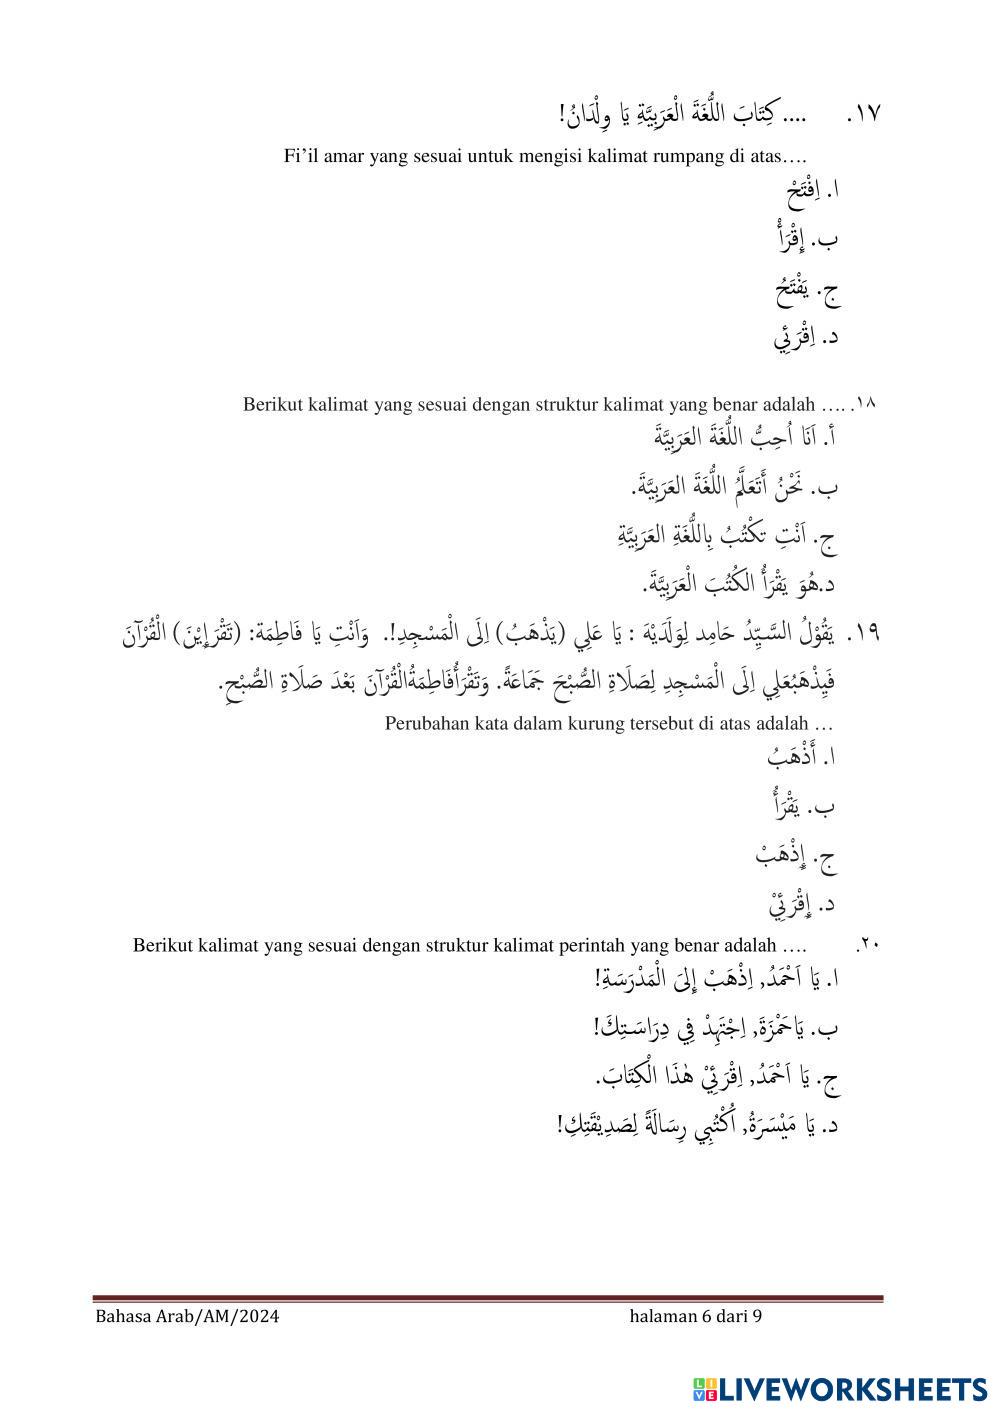 ١٧. .... كِتَابَ اللُّغَةَ الْعَرَبِيَّةِ يَا وِلْدَانُ!
Fi’il amar yang sesuai untuk mengisi kalimat rumpang di atas….
ا. اِفْتَحْ
ب. إِقْرَأْ
ج. يَفْتَحُ
د. اِقْرَئِي
١٨. Berikut kalimat yang sesuai dengan struktur kalimat yang benar adalah ….
أ. اَنَا اُحِبُّ اللُّغَةَ العَرَبِيَّةَ
ب. نَحْنُ أَتَعَلَّمُ اللُّغَةَ العَرَبِيَّةَ.
ج. اَنْتِ تَكْتُبُ بِاللُّغَةِ العَرَبِيَّةِ
د.هُوَ يَقْرَأُ الكُتُبَ الْعَرَبِيَّةَ.
١٩. يَقُوْلُ السَّيِّدُ حَامِد لِوَلَدَيْهَ : يَا عَلِي (يَذْهَبُ) اِلَى الْمَسْجِدِ!. وَاَنْتِ يَا فَاطِمَة: (تَقْرَإِيْنَ) الْقُرْآنَ
فَيِذْهَبُعَلِي اِلَى الْمَسْجِدِ لِصَلَاةِ الصُّبْحَ جَمَاعَةً. وَتَقْرَأُفَاطِمَةُالْقُرْآنَ بَعْدَ صَلَاةِ الصُّبْحِ.
Perubahan kata dalam kurung tersebut di atas adalah …
ا. أَذْهَبُ
ب. يَقْرَأُ
ج. إِذْهَبْ
د. إِقْرَئِيْ
٢٠. Berikut kalimat yang sesuai dengan struktur kalimat perintah yang benar adalah ….
ا. يَا اَحْمَدُ, اِذْهَبْ إِلىَ الْمَدْرَسَةِ!
ب. يَاحَمْزَةَ, اِجْتَهِدْ فِي دِرَاسَتِكَ!
ج. يَا اَحْمَدُ, اِقْرَئِيْ هٰذَا الْكِتَابَ.
د. يَا مَيْسَرَةُ, اُكْتُبِي رِسَالَةً لِصَدِيْقَتِكِ!
Bahasa Arab/AM/2024 halaman 6 dari 9
LIVEWORKSHEETS